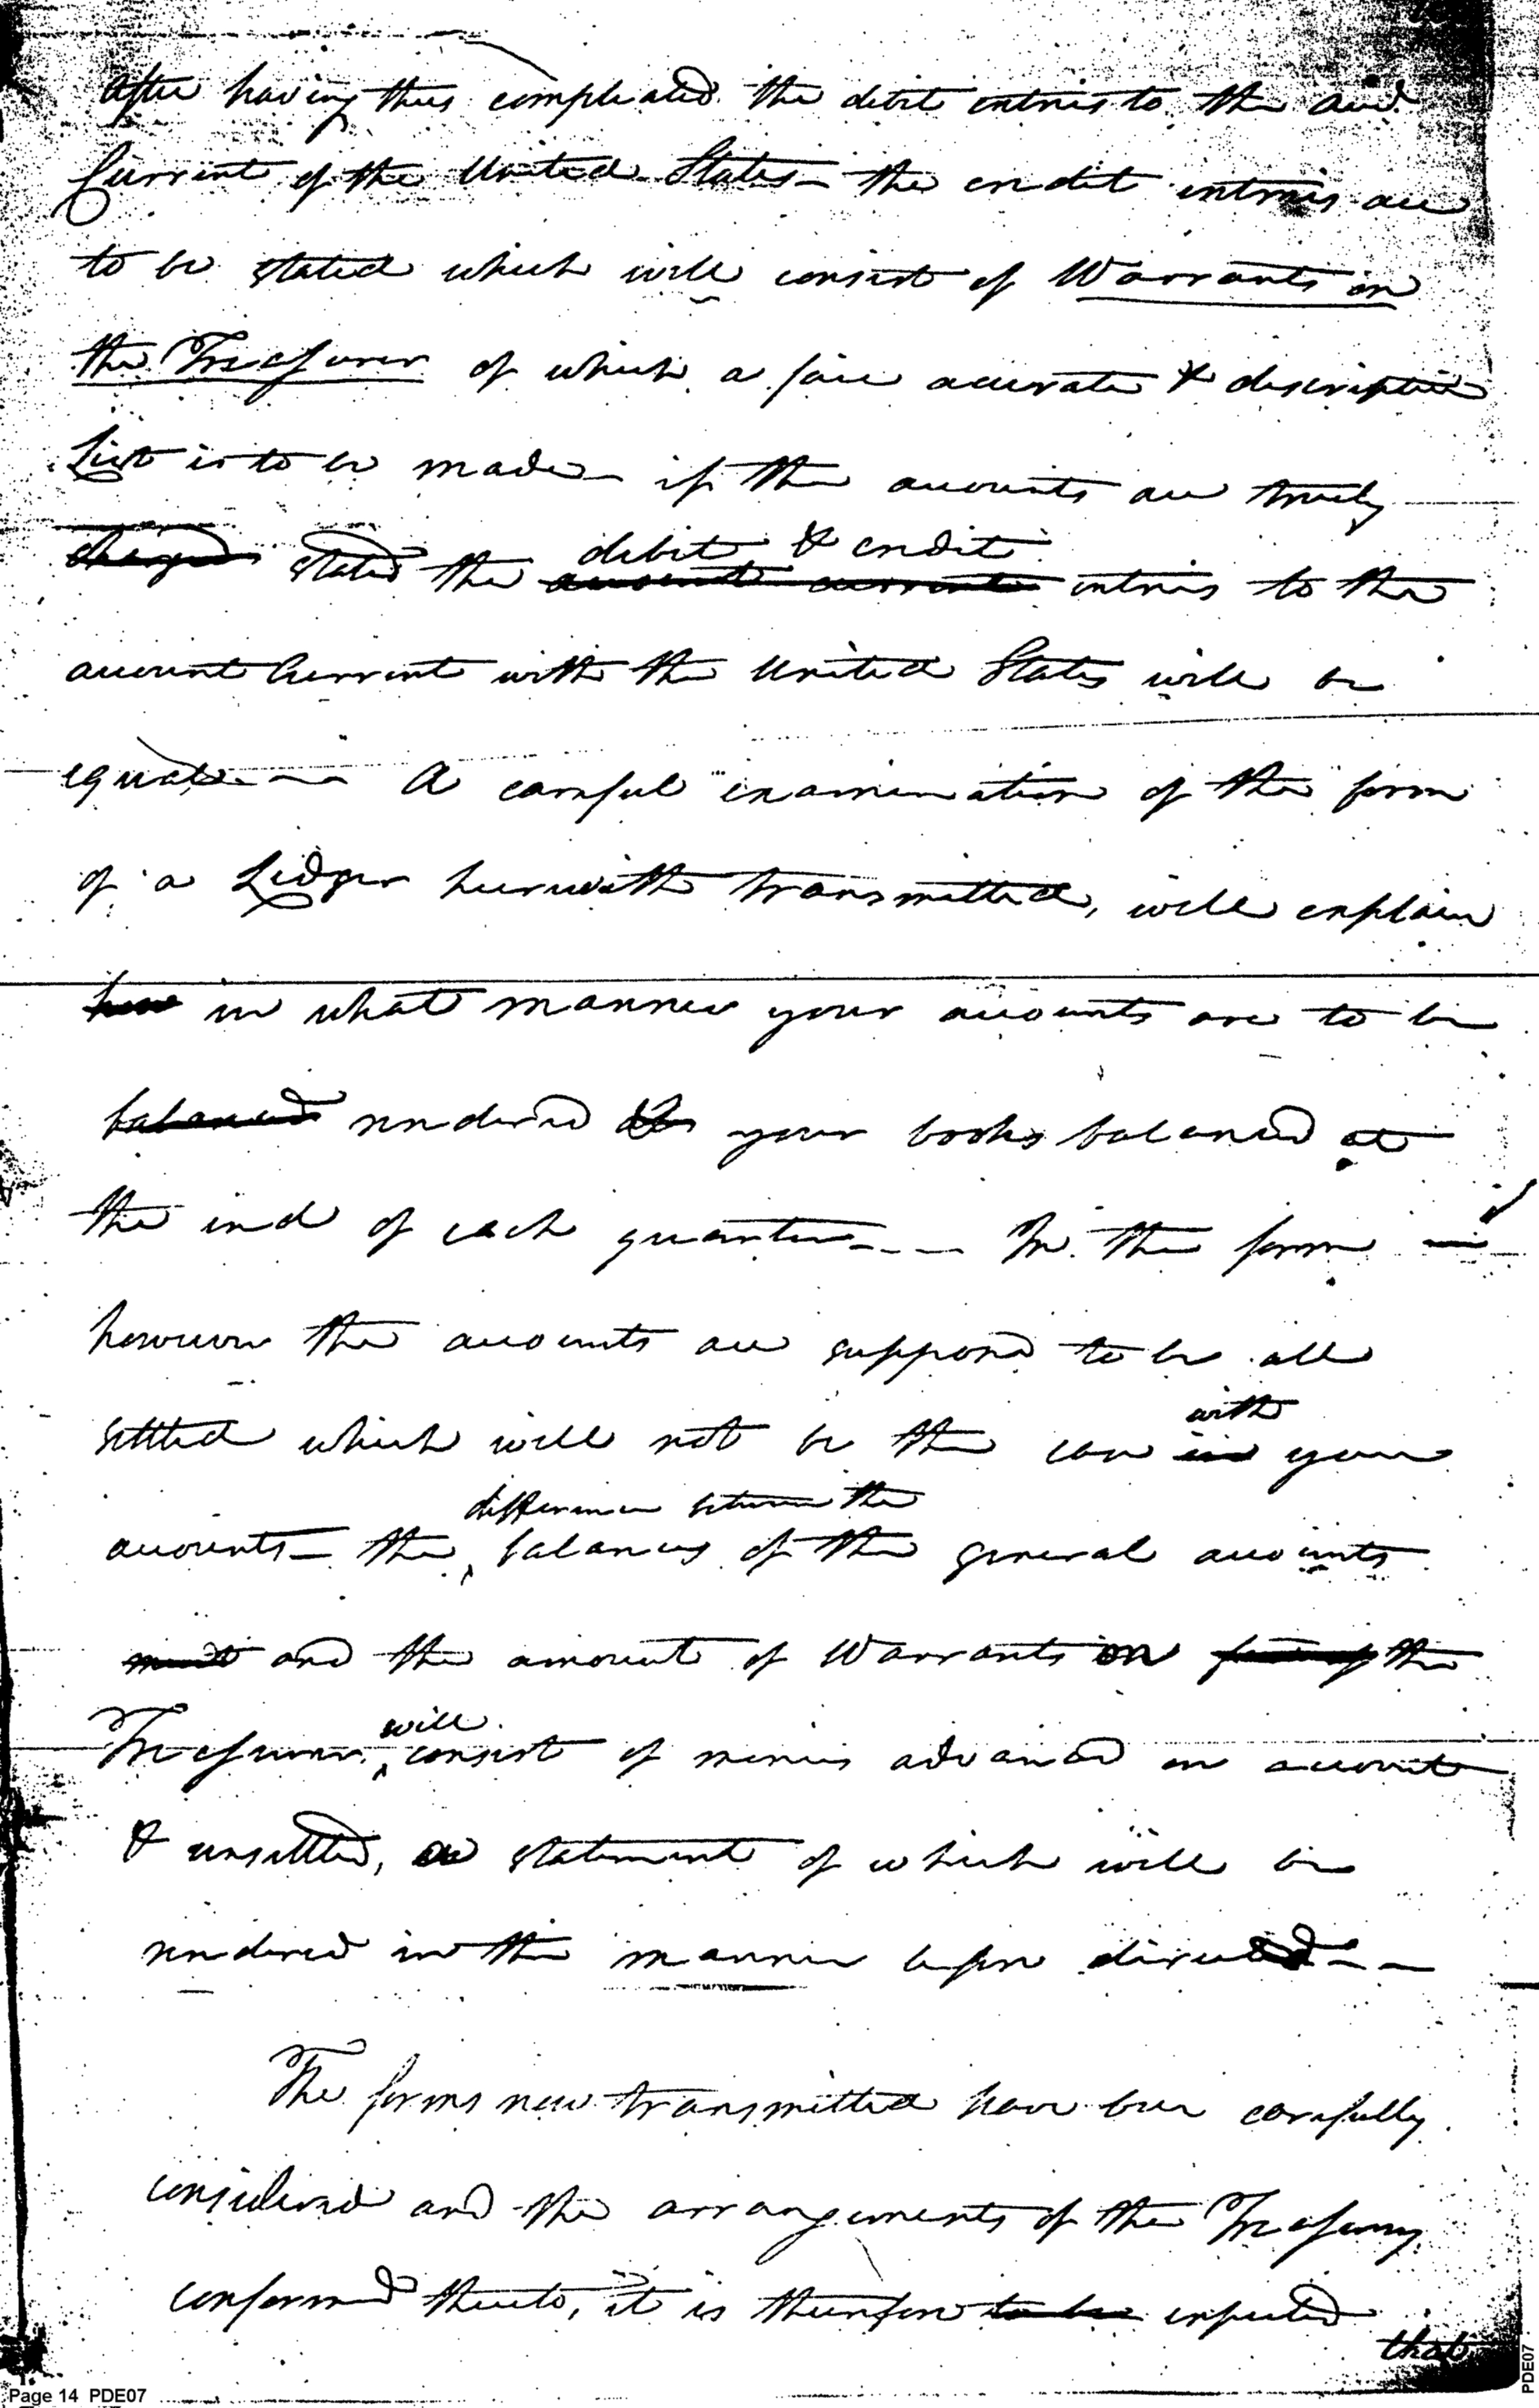 After having thus compleated the debit entries to the acct.
Current of the United States – the credit entries are
to be stated which will consist of Warrants on
the Treasurer of which a fair accurate & descriptive
List is to be made – if the accounts are truly
charged stated the account current debit & credit entries to the
account Current with the United States will be
equal. — A careful examination of the form
of a Ledger herewith transmitted, will explain
how in what manner your accounts are to be
balanced rendered & your books balanced at
the end of each quarter — In the form
however the accounts are supposed to be all
settled which will not be the case in with your
accounts – the difference between the balances of the general accounts
must and the amount of Warrants on the
Treasurer, will consist of monies advanced on account
& unsettled, a statement of which will be
rendered in the manner before directed – –
The forms now transmitted have been carefully
considered and the arrangements of the Treasury
conformed thereto, it is therefore to be expected
that
Page 14 PDE07
PDE07